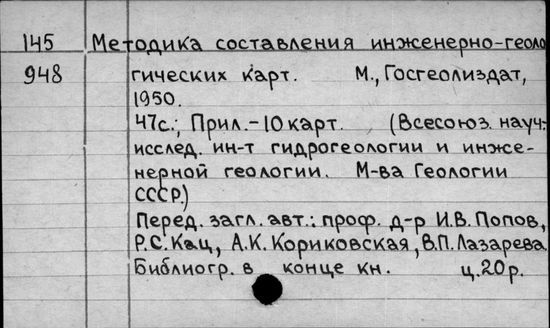 145 Методика составления инженерно-геоло
948 гических карт. М., Госгеолиздат,
1950.
47с.; Прил.-10 карт. (Всесоюз. науч.-
исслед. ин-т гидрогеологии и инже-
нерной геологии. М-ва Геологии
СССР.)
Перед. загл. авт.: проф. д-р И.В. Попов,
Р.С. Кац, А.К. Кориковская, В.П. Лазарева.
Библиогр. в конце кн. ц. 20 р.